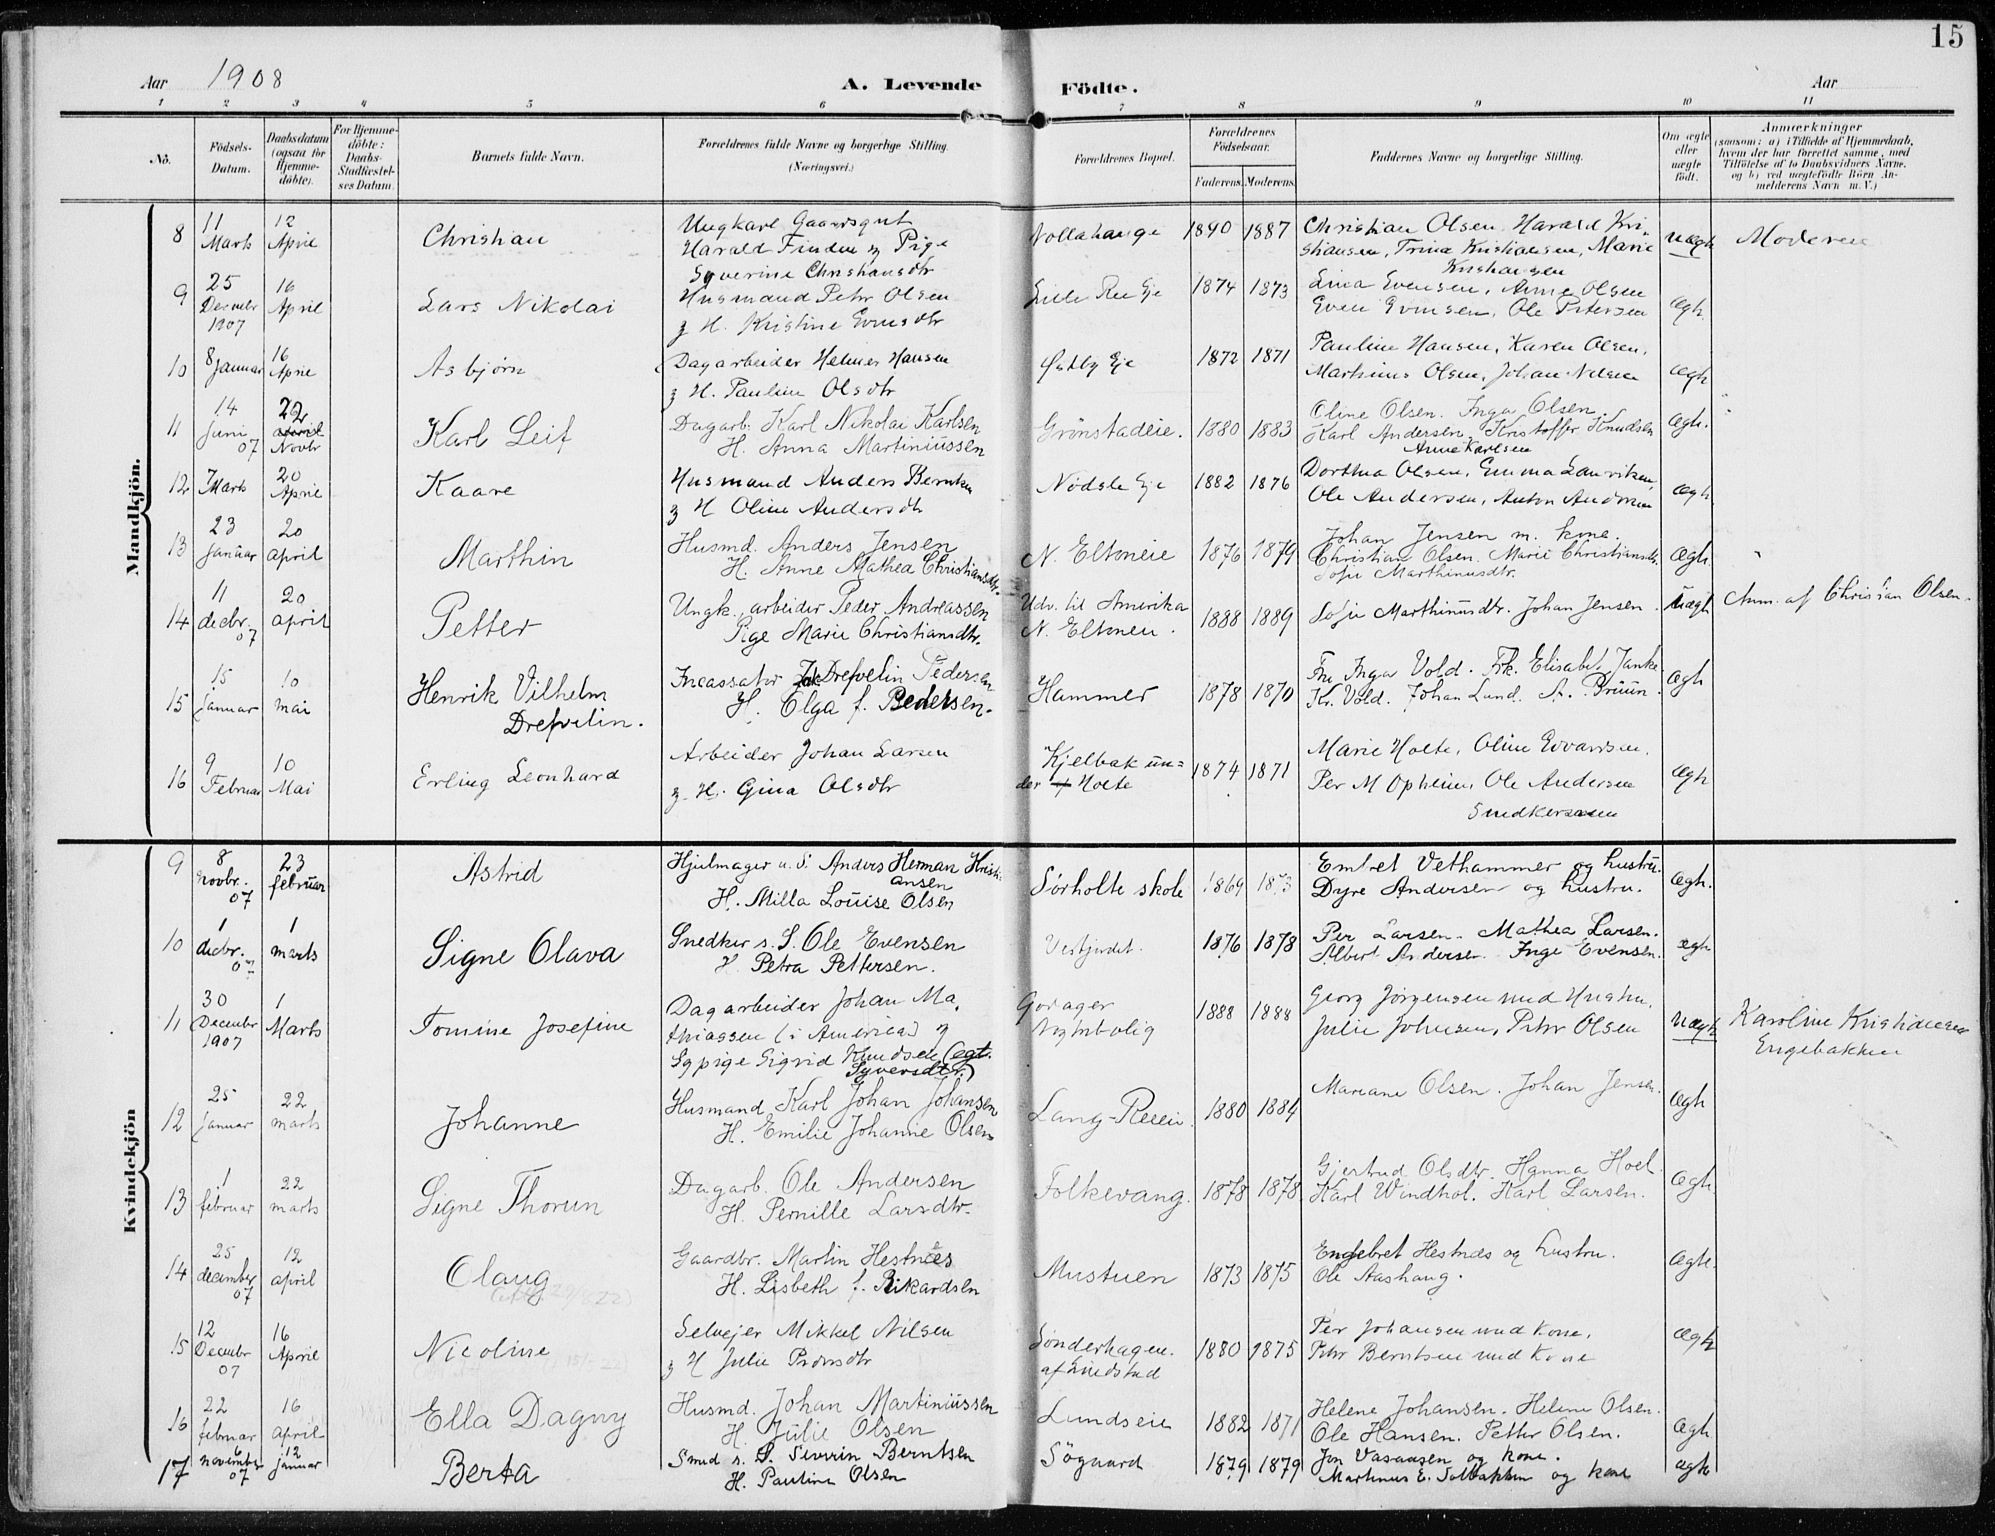 15
Aar 1908 A. Levende Födte. Aar
1 2 3 4 5 6 7 8 9 10 11
No. Födsels-Datum. Daabsdatum (ogsaa for Hjemmedöbte). For Hjemmedöbte: Daabs-Stadfæstelses Datum. Barnets fulde Navn. Forældrenes fulde Navne og borgerlige Stilling. (Næringsvei.) Forældrenes Bopæl. Forældrenes Födselsaar. Faderens. Moderens. Faddernes Navne og borgerlige Stilling. Om ægte eller uægte födt. Anmærkninger (saasom: a) i Tilfælde af Hjemmedaab, hvem der har forrettet samme, med Tilföielse af to Daabsvidners Navne, og b) ved uægtefödte Börn Anmelderens Navn m. V.)
Mandkjön.
8 11 Marts 12 April Christian Ungkarl Gaardsgut Harald Finden og Pige Syverine Christiansdtr 1890 1887 Christian Olsen, Harald Kristiansen, Trina Kristiansen, Marie Kristiansen uægte Moderen
9 25 Decembr 1907 16 April Lars Nikolai Husmand Petr Olsen og H. Kristine Evensdtr Lille Rue Eje 1874 1873 Lina Evensen, Anne Olsen Even Evensen, Ole Petersen ægte
10 8 Januar 16 April Asbjørn Dagarbeider Helmer Hansen og H. Pauline Olsdtr Østby Eje 1872 1871 Pauline Hansen, Karen Olsen, Martinus Olsen, Johan Nilsen ægte
11 14 Juni 07 22 april Novbr Karl Leif Dagarb. Karl Nikolai Karlsen H. Anna Martiniussen Grönstadeie. 1880 1883 Oline Olsen. Inga Olsen. Karl Andersen. Kristoffer Knudsen Anne Karlsen ægte.
12 Marts 20 April Kaare Husmand Anders Berntsen og H Oline Andersdtr Nødsle Eje 1882 1876 Dorthea Olsen, Emma Lauritsen, Ole Andersen, Anton Andersen ægte
13 23 januar 20 april Marthin Husmd. Anders Jensen H. Anne Mathea Christiansdtr. N. Eltoneie 1876 1879 Johan Jensen m. kone. Christian Olsen. Marie Christiansdtr. Sofie Marthinusdtr. ægte.
14 11 decbr. 07 20 april Petter Ungk., arbeider Peder Andreassen Pige Marie Christiansdtr. Udv. til Amerika N. Eltoneie. 1888 1889 Sofie Marthinusdtr. Johan Jensen. uægte Anm. af Christian Olsen.
15 15 januar 10 mai Henrik Vilhelm Drefvelin. Incassator Drefvelin Pedersen H. Olga f. Pedersen. Hammer 1878 1870 Fru Inga Vold. Frk. Elisabet Janke. Kr. Vold. Johan Lund. A. Bruun. ægte
16 9 Februar 10 Mai Erling Leonhard Arbeider Johan Larsen og H. Gina Olsdtr Kjelbak under Holte 1874 1871 Marie Holte, Oline Edvardsen, Per M Opheim, Ole Andersen Snedkersveen ægte
Kvindekjön
9 8 novbr. 07 23 februar Astrid Hjulmager u. S. Anders Herman Kristiansen H. Milla Louise Olsen Sörholte skole 1869 1873 Embret Vethammer og hustru. Dyre Andersen og hustru. ægte.
10 1 decbr. 07 1 marts Signe Olava Snedker s. S. Ole Evensen H Petra Pettersen. Vestjordet. 1876 1878 Per Larsen. Mathea Larsen. Albert Andersen Inge Evensen. ægte
11 30 Decembr 1907 1 Marts Tomine Josefine Dagarbeider Johan Mathiassen (i America) og Sypige Sigrid Knudsen (egt. Syversdtr.) Godager 1888 1888 Georg Jørgensen med Hustru, Julie Johnsen, Petr Olsen uægte Karoline Kristiansen Engebakken
12 25 januar 22 marts Johanne Husmand Karl Johan Johansen H. Emilie Johanne Olsen Lang-Rueeie. 1880 1884 Mariane Olsen. Johan Jensen. ægte
13 1 februar 22 marts Signe Thorun Dagarb. Ole Andersen H. Pernille Larsdtr. Folkevang. 1878 1878 Gjertrud Olsdtr. Hanna Hoel. Karl Windhol. Karl Larsen. ægte.
14 25 december 07 12 april Olaug Gaardbr. Martin Hestnes H. Lisbeth f. Rikardsen Mustuen 1873 1875 Engebret Hestnæs og hustru. Ole Aashaug. ægte.
15 12 Decembr 07 16 April Nicoline Selvejer Mikkel Nilsen og H Julie Pedersdtr Sønderhagen af Lundstad 1880 1875 Per Johansen med Kone, Petr Berntsen med Kone ægte
16 22 februar 16 april Ella Dagny Husmd. Johan Martiniussen H. Julie Olsen Lundseie 1882 1871 Helene Johansen. Helene Olsen. Ole Hansen. Petter Olsen. ægte
17 6 november 07 12 januar Berta Smed s. S. Severin Berntsen H. Pauline Olsen Sögaard 1879 1879 Jon Vasaasen og kone. Martinus E. Solbakken og kone ægte